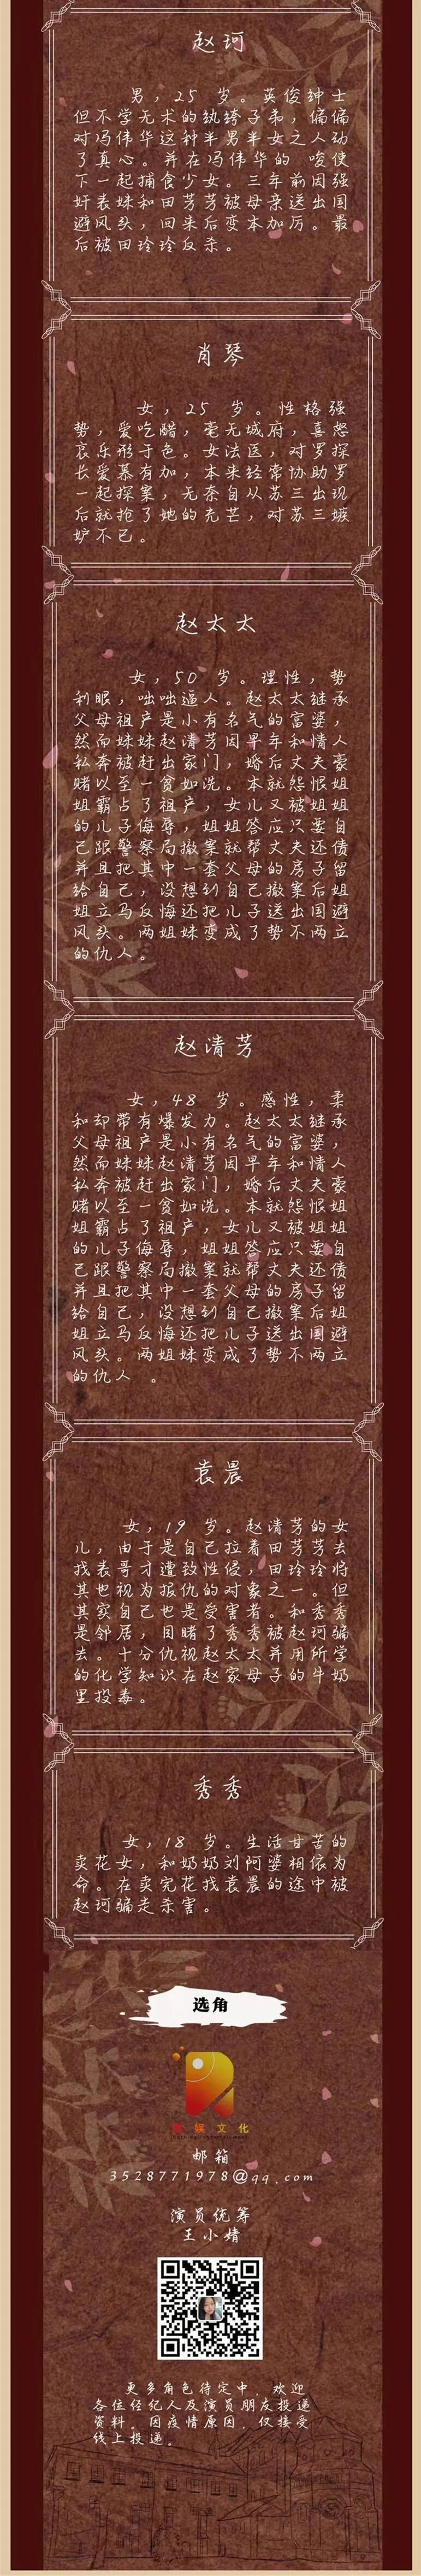 赵珂
男，25 岁。英俊绅士
但不学无术的纨绔子弟，偏偏
对冯伟华这种半男半女之人动
了真心。并在冯伟华的 唆使
下一起捕食少女。三年前因强
奸表妹和田芳芳被母亲送出国
避风头，回来后变本加厉。最
后被田玲玲反杀。
肖琴
女，25 岁。性格强
势，爱吃醋，毫无城府，喜怒
哀乐形于色。女法医，对罗探
长爱慕有加，本来经常协助罗
一起探案，无奈自从苏三出现
后就抢了她的光芒，对苏三嫉
妒不已。
赵太太
女，50 岁。理性，势
利眼，咄咄逼人。赵太太继承
父母祖产是小有名气的富婆，
然而妹妹赵清芳因早年和情人
私奔被赶出家门，婚后丈夫豪
赌以至一贫如洗。本就怨恨姐
姐霸占了祖产，女儿又被姐姐
的儿子侮辱，姐姐答应只要自
己跟警察局撤案就帮丈夫还债
并且把其中一套父母的房子留
给自己，没想到自己撤案后姐
姐立马反悔还把儿子送出国避
风头。两姐妹变成了势不两立
的仇人。
赵清芳
女，48 岁。感性，柔
和却带有爆发力。赵太太继承
父母祖产是小有名气的富婆，
然而妹妹赵清芳因早年和情人
私奔被赶出家门，婚后丈夫豪
赌以至一贫如洗。本就怨恨姐
姐霸占了祖产，女儿又被姐姐
的儿子侮辱，姐姐答应只要自
己跟警察局撤案就帮丈夫还债
并且把其中一套父母的房子留
给自己，没想到自己撤案后姐
姐立马反悔还把儿子送出国避
风头。两姐妹变成了势不两立
的仇人 。
袁晨
女，19 岁。赵清芳的女
儿，由于是自己拉着田芳芳去
找表哥才遭致性侵，田玲玲将
其也视为报仇的对象之一。但
其实自己也是受害者。和秀秀
是邻居，目睹了秀秀被赵珂骗
去。十分仇视赵太太并用所学
的化学知识在赵家母子的牛奶
里投毒。
秀秀
女，18 岁。生活甘苦的
卖花女，和奶奶刘阿婆相依为
命。在卖完花找袁晨的途中被
赵珂骗走杀害。
选角
文化
邮箱
3528771978@qq.com
演员统筹
王小婧
更多角色待定中，欢迎
各位经纪人及演员朋友投递
资料。因疫情原因，仅接受
线上投递。